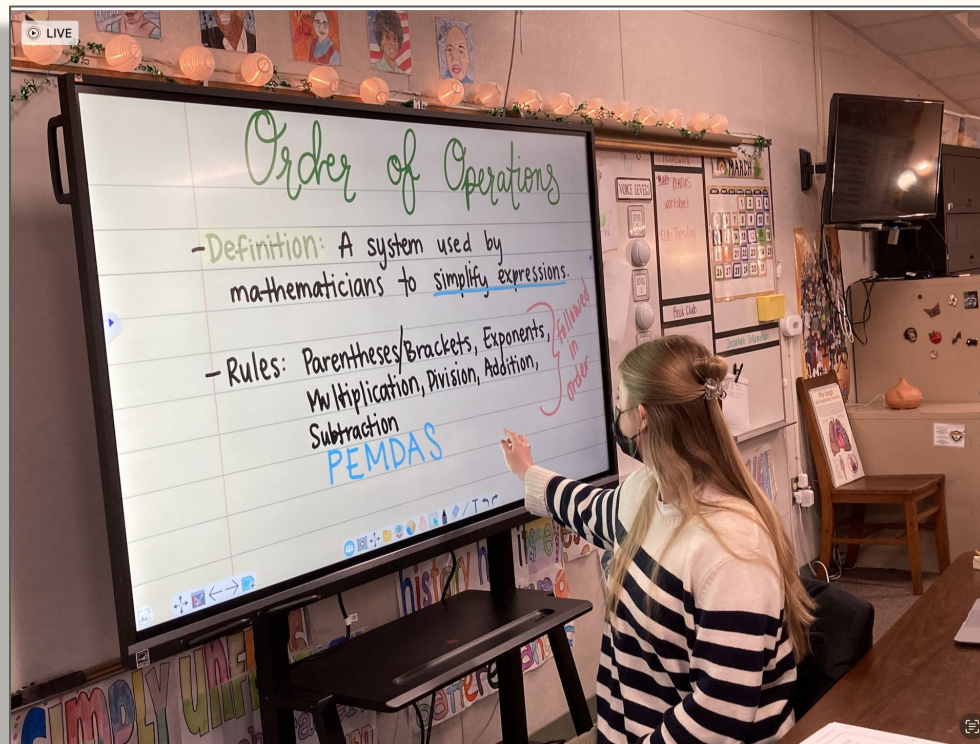 LIVE
Order of Operations
- Definition: A system used by
mathematicians to simplify expressions.
- Rules: Parentheses/Brackets, Exponents,
Multiplication, Division, Addition,
Subtraction
PEMDAS
followed
in
order
VOICE LEVELS
worksheet
MARCH
Book Club
Important Information
SIMPLY
history